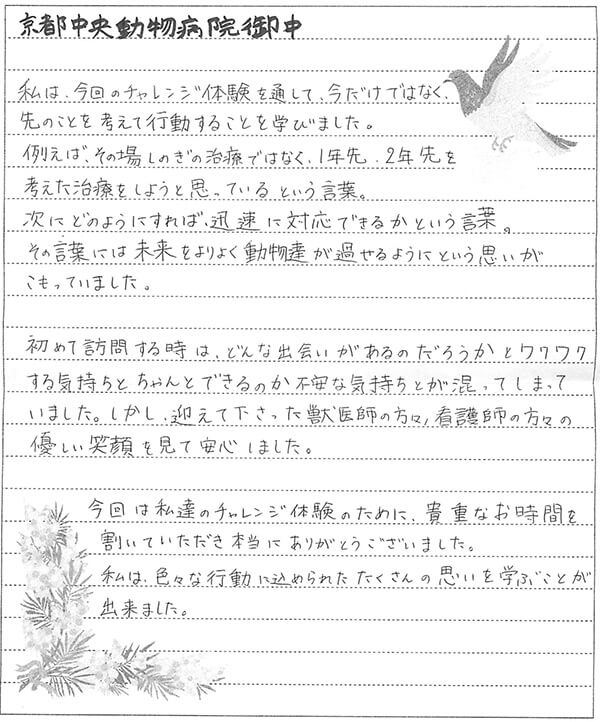 京都中央動物病院御中
私は、今回のチャレンジ体験を通して、今だけではなく、
先のことを考えて行動することを学びました。
例えば、その場しのぎの治療ではなく、1年先、2年先を
考えた治療をしようと思っているという言葉。
次にどのようにすれば、迅速に対応できるかという言葉。
その言葉には未来をよりよく動物達が過せるようにという思いが
こもっていました。
初めて訪問する時は、どんな出会いがあるのだろうかとワクワク
する気持ちとちゃんとできるのか不安な気持ちとが混ってしまって
いました。しかし、迎えて下さった獣医師の方々、看護師の方々の
優しい笑顔を見て安心しました。
今回は私達のチャレンジ体験のために、貴重なお時間を
割いていただき本当にありがとうございました。
私は、色々な行動に込められたたくさんの思いを学ぶことが
出来ました。